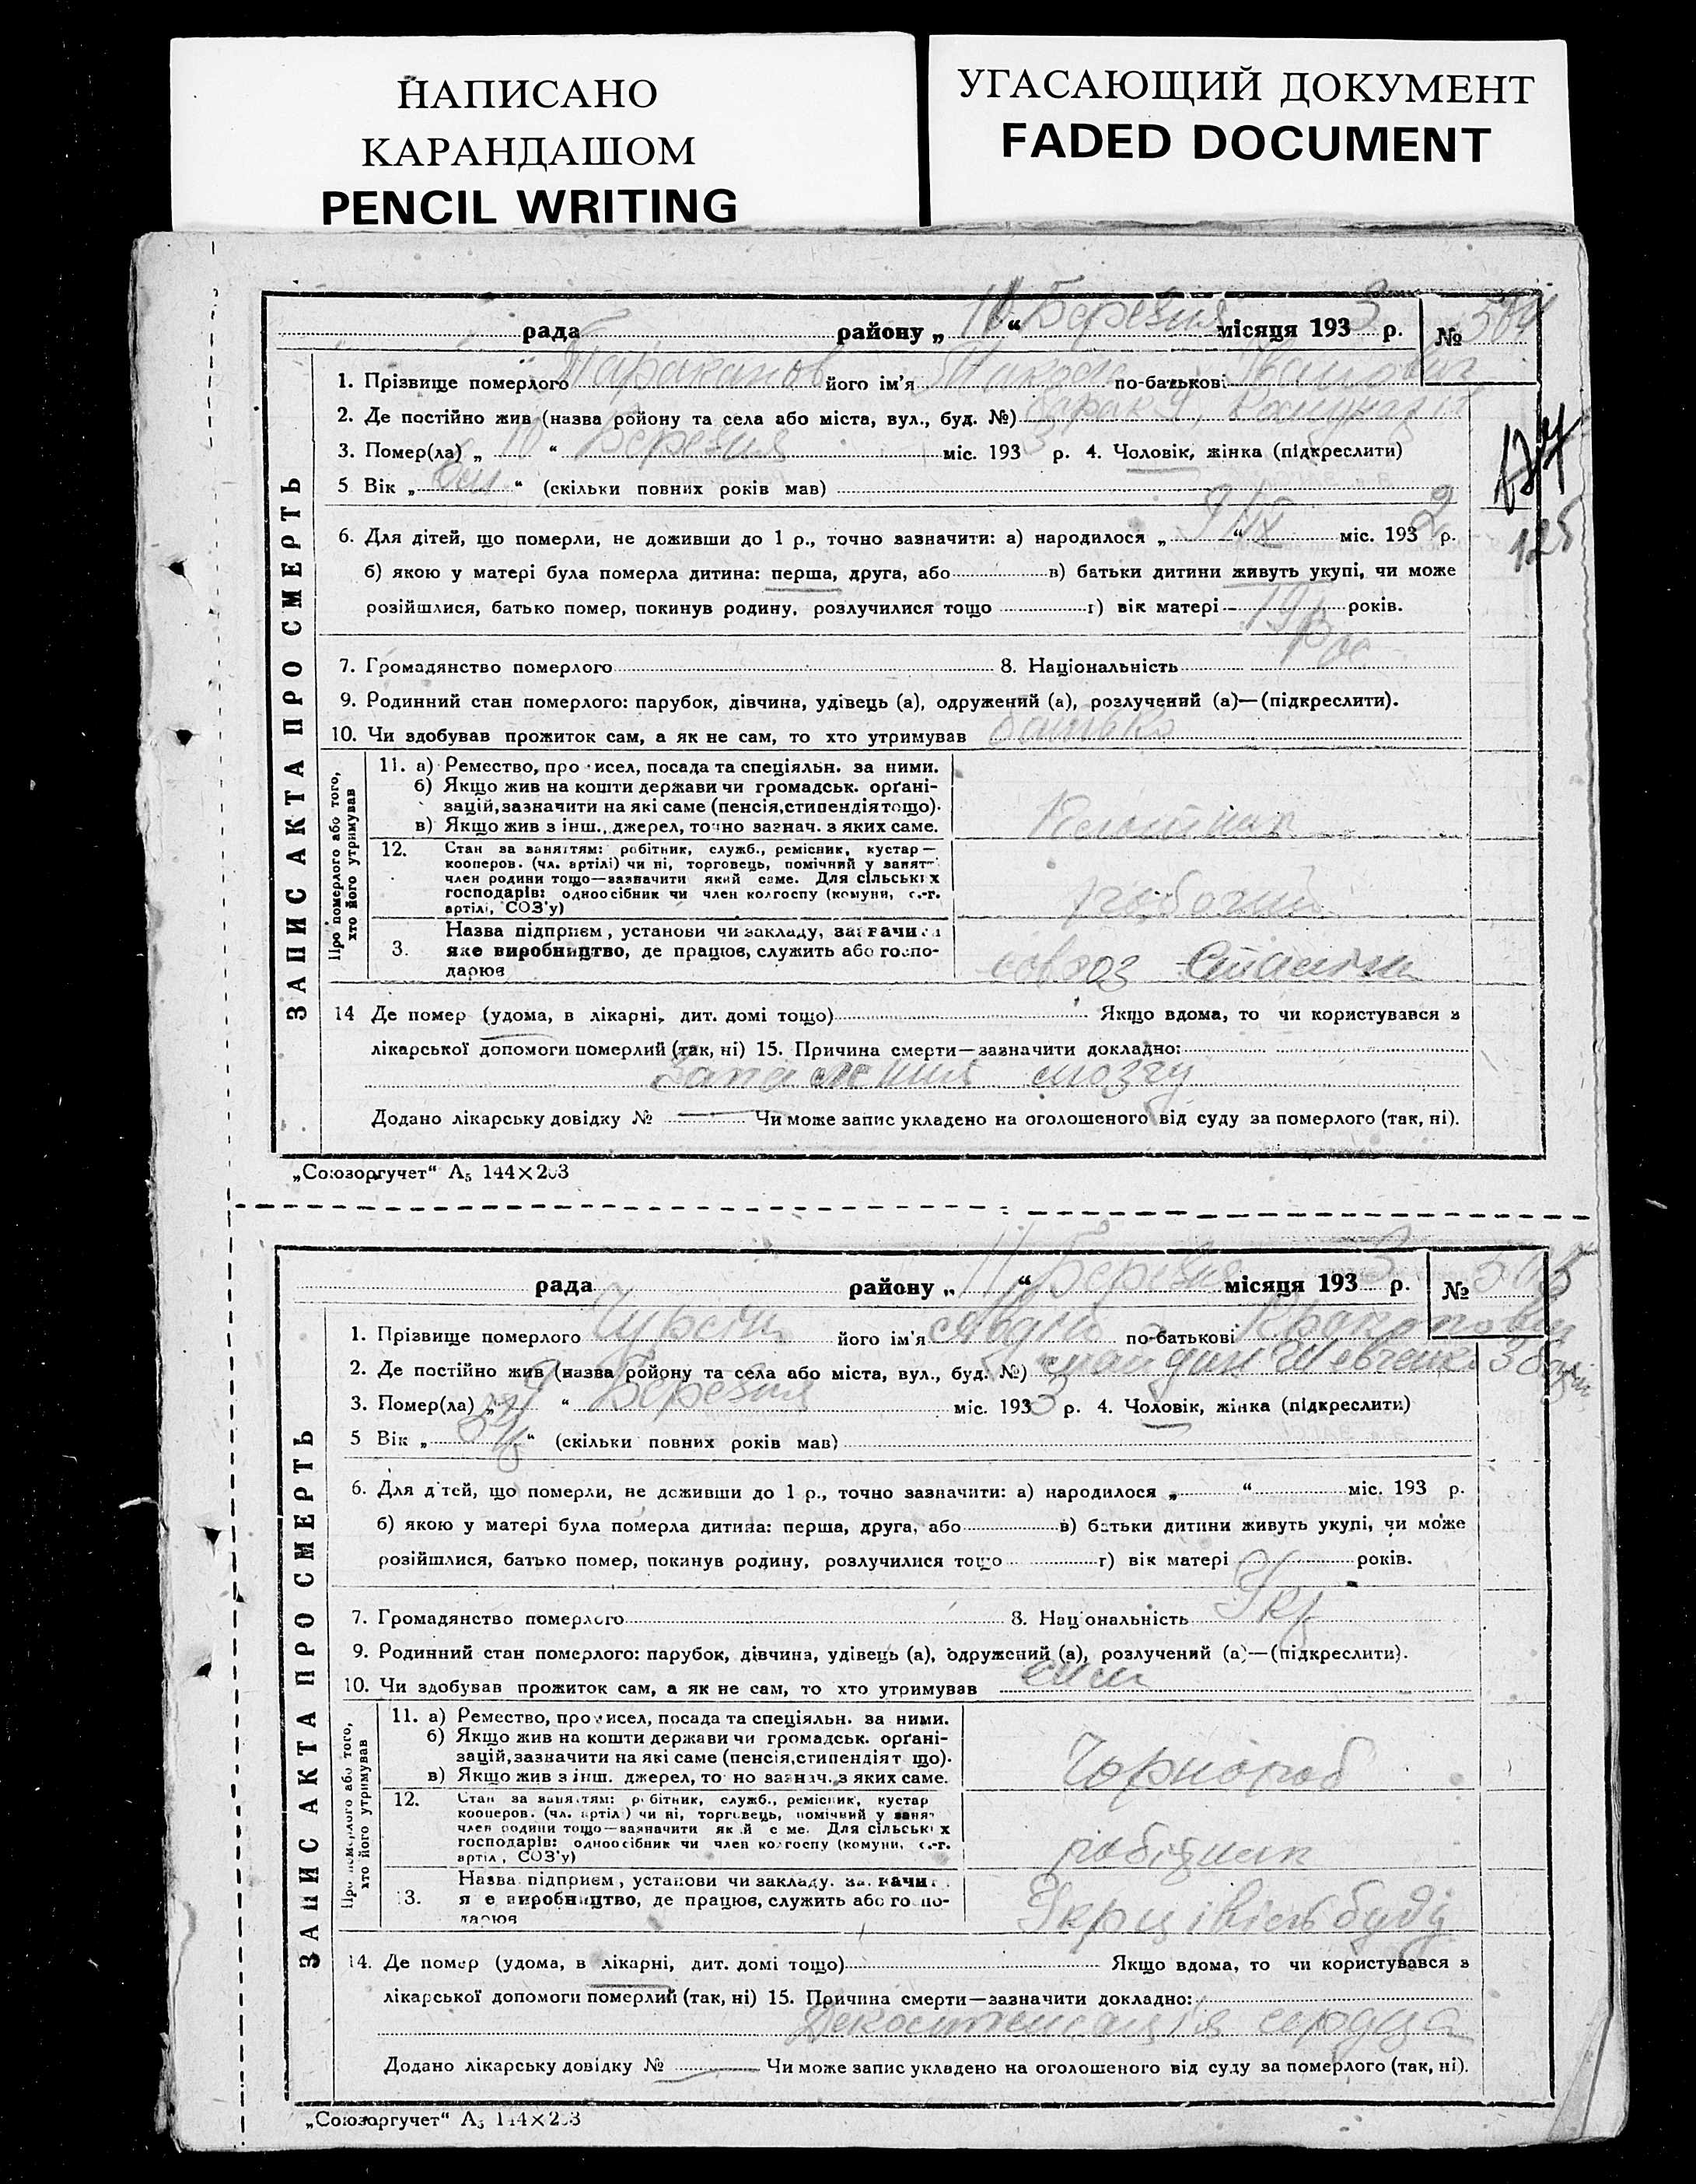 НАПИСАНО
КАРАНДАШОМ
PENCIL WRITING
УГАСАЮЩИЙ ДОКУМЕНТ
FADED DOCUMENT
ЗАПИС АКТА ПРО СМЕРТЬ
рада району „ “ Березня місяця 193 3 р. № 504
1. Прізвище померлого Тараканов його ім'я по-батькові Іванович
2. Де постійно жив (назва ройону та села або міста, вул., буд. №) барак
3. Помер(ла) „ 10 “ Березня міс. 193 3 р. 4. Чоловік, жінка (підкреслити)
5 Вік „ “ (скільки повних років мав)
125
6. Для дітей, що померли, не доживши до 1 р., точно зазначити: а) народилося „ 9 “ IX міс. 193 2 р.
б) якою у матері була померла дитина: перша, друга, або в) батьки дитини живуть укупі, чи може
розійшлися, батько помер, покинув родину, розлучилися тощо г) вік матері 19 років.
7. Громадянство померлого 8. Національність Рос
9. Родинний стан померлого: парубок, дівчина, удівець (а), одружений (а), розлучений (а)—(підкреслити).
10. Чи здобував прожиток сам, а як не сам, то хто утримував батько
Про померлого або того,
хто його утримував
11. а) Ремество, про исел, посада та спеціяльн. за ними.
б) Якщо жив на кошти держави чи громадськ. орґані-
зацій, зазначити на які саме (пенсія, стипендія тощо).
в) Якщо жив з інш., джерел, точно зазнач. з яких саме.
12. Стан за заняттям: робітник, служб., ремісник, кустар—
кооперов. (чл. артілі) чи ні, торговець, помічний у занят
член родини тощо—зазначити який саме. Для сільських
господарів: одноосібник чи член колгоспу (комуни, с.-г.
артілі, СОЗ'у)
робочий
Назва підприєм, установи чи закладу, зазначи
3. яке виробництво, де працюв, служить або госпо-
дарюв
совхоз
14 Де помер (удома, в лікарні, дит. домі тощо) Якщо вдома, то чи користувався з
лікарської допомоги померлий (так, ні) 15. Причина смерти—зазначити докладно:
Запалення мозгу
Додано лікарську довідку № — Чи може запис укладено на оголошеного від суду за померлого (так, ні).
„Союзоргучет“ А5 144×203
ЗАПИС АКТА ПРО СМЕРТЬ
рада району „ 11 “ Березня місяця 193 3 р. № 505
1. Прізвище померлого Чурсін його ім'я Авдій по-батькові
2. Де постійно жив (назва ройону та села або міста, вул., буд. №) майдан Шевченка 3
3. Помер(ла) „ 9 “ Березня міс. 193 3 р. 4. Чоловік, жінка (підкреслити)
5 Вік „ “ (скільки повних років мав)
6. Для дітей, що померли, не доживши до 1 р., точно зазначити: а) народилося „ “ міс. 193 р.
б) якою у матері була померла дитина: перша, друга, або в) батьки дитини живуть укупі, чи може
розійшлися, батько помер, покинув родину, розлучилися тощо г) вік матері років.
7. Громадянство померлого 8. Національність Укр
9. Родинний стан померлого: парубок, дівчина, удівець (а), одружений (а), розлучений (а)—(підкреслити).
10. Чи здобував прожиток сам, а як не сам, то хто утримував
Про померлого або того,
хто його утримував
11. а) Ремество, про исел, посада та спеціяльн. за ними.
б) Якщо жив на кошти держави чи громадськ. орґані-
зацій, зазначити на які саме (пенсія, стипендія т що).
в) Якщо жив з інш. джерел, то но зазнач. з яких саме.
Чорнороб
12. Стан за заняттям: робітник, служб., ремісник, кустар
кооперов. (чл. артілі) чи ні, торговець, помічний у занят
член родини тощо—зазначити який саме. Для сільських
господарів: одноосібник чи член колгоспу (комуни, с.-г.
артіл, СОЗ'у)
робітник
Назва підприєм, установи чи закладу, зазначи
3. яке виробництво, де працюв, служить або госпо-
дарюв
14. Де помер (удома, в лікарні, дит. домі тощо) Якщо вдома, то чи користувався з
лікарської допомоги померлий (так, ні) 15. Причина смерти—зазначити докладно:
Декомпенсація сердца
Додано лікарську довідку № — Чи може запис укладено на оголошеного від суду за померлого (так, ні).
„Союзоргучет“ А5 144×203